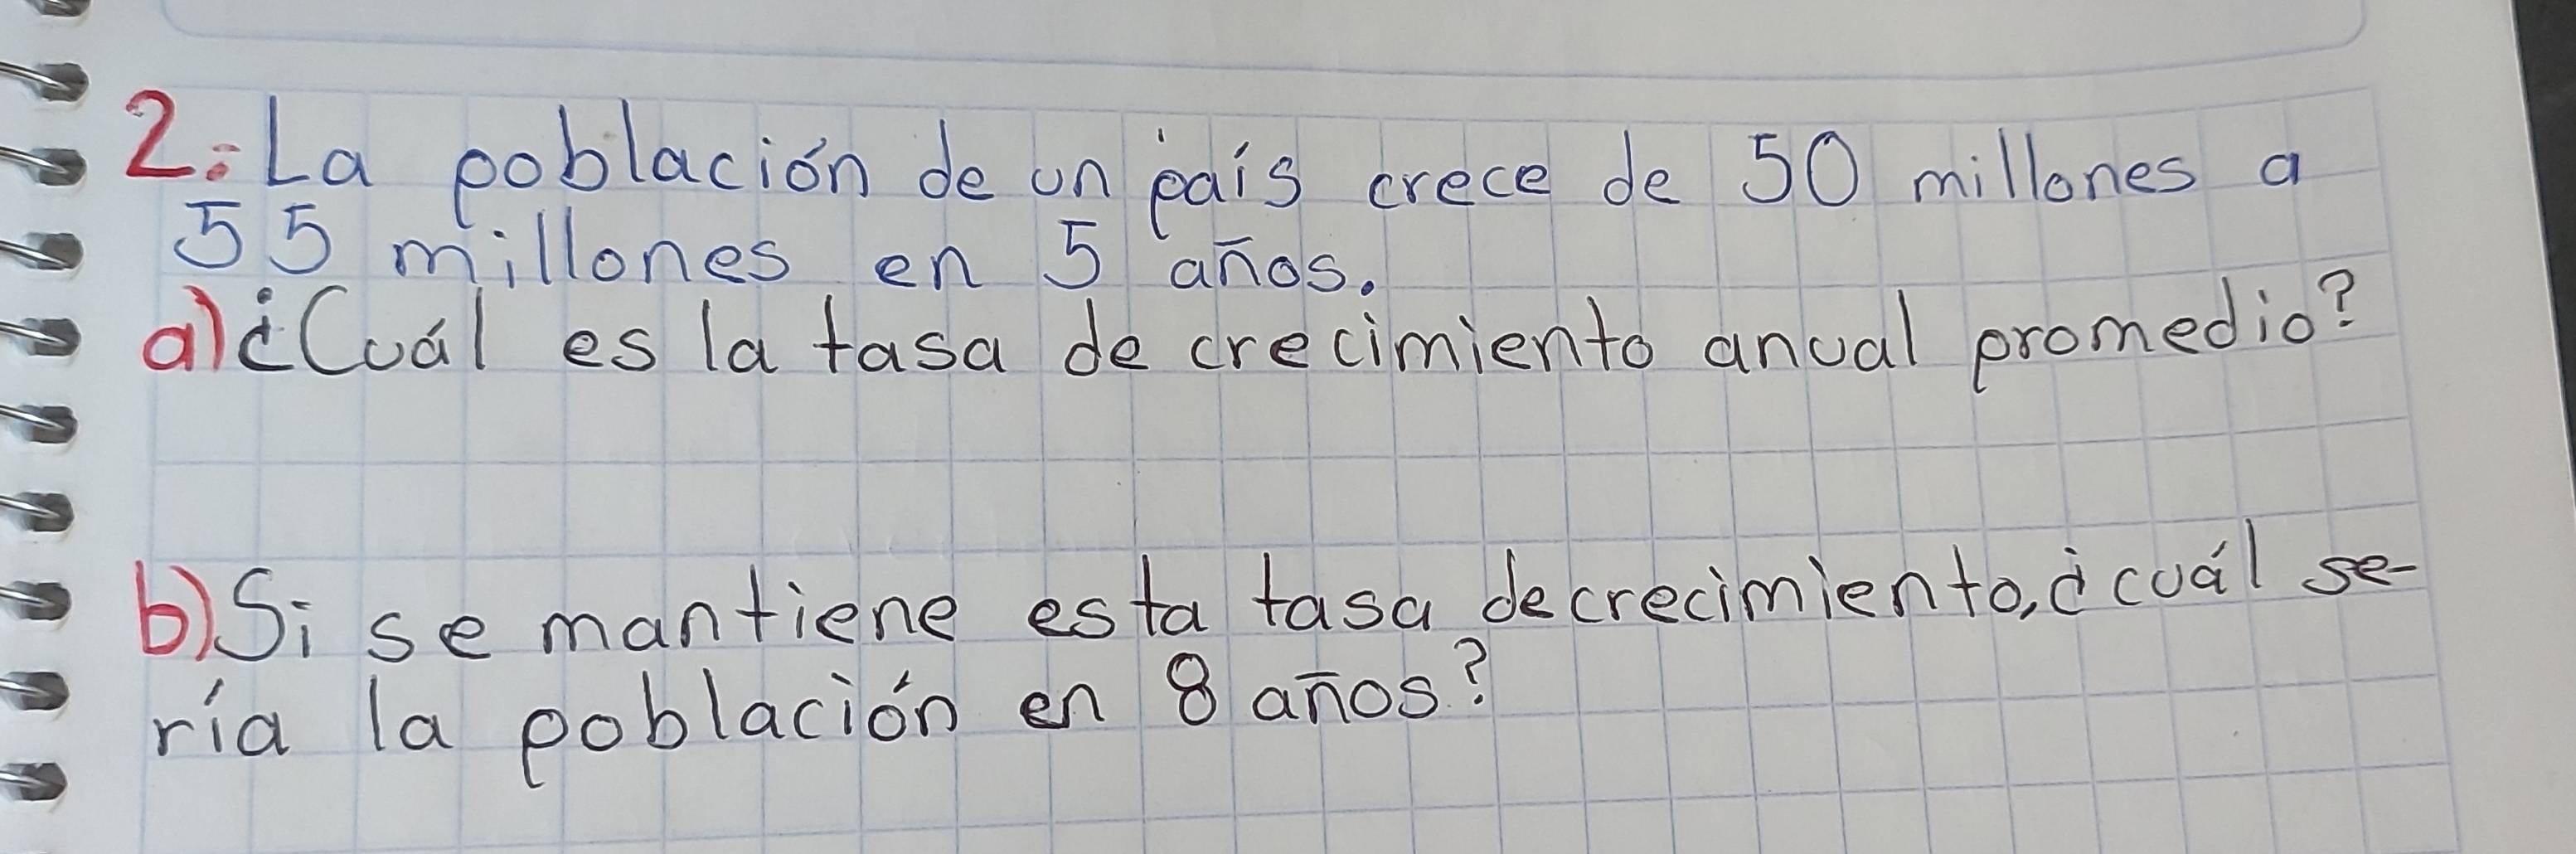 2. La población de un país crece de 50 millones a
55 millones en 5 años.
a) ¿Cuál es la tasa de crecimiento anual promedio?
b) Si se mantiene esta tasa decrecimiento, ¿cuál se-
ría la población en 8 años?